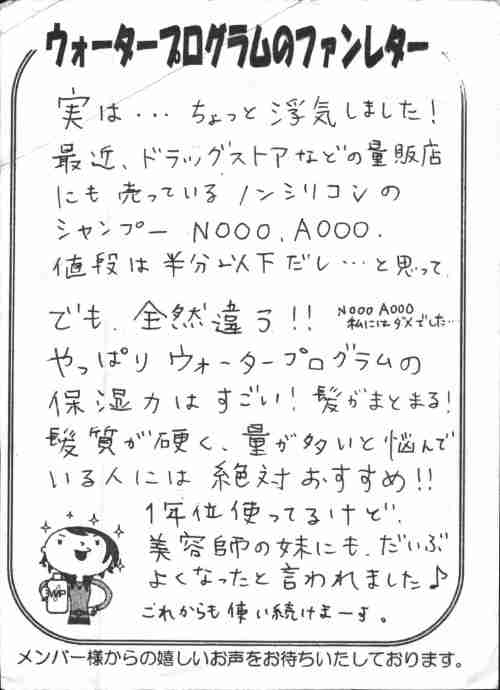 ウォータープログラムのファンレター
実は・・・ちょっと浮気しました！
最近、ドラッグストアなどの量販店
にも売っているノンシリコンの
シャンプー NOOO、AOOO.
値段は半分以下だし…と思って、
でも、全然違う！！ NOOO AOOO
私にはダメでした…
やっぱりウォータープログラムの
保湿力はすごい！髪がまとまる！
髪質が硬く、量が多いと悩んで
いる人には絶対おすすめ！！
1年位使ってるけど、
美容師の妹にも、だいぶ
よくなったと言われました♪
これからも使い続けまーす。
WP
メンバー様からの嬉しいお声をお待ちいたしております。